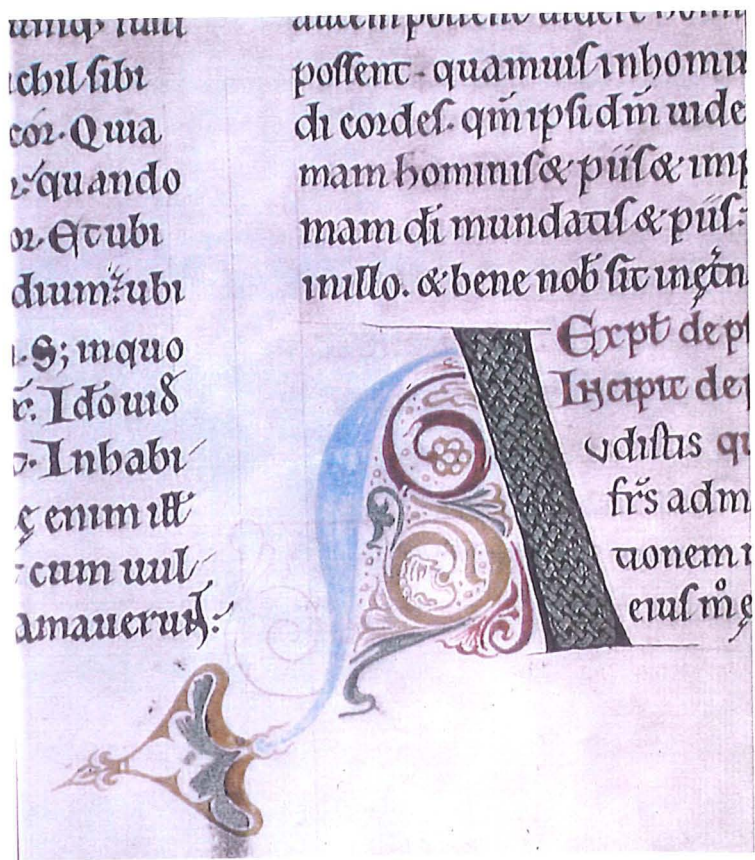 chil sibi
cor. Quia
quando
or. Et ubi
dium? ubi
S; inquo
c. Idō uid&
Inhabi
ę enim ill̄
cum uul
amauerunt.
autem potuerit uidere homi
possent. quamuis inhomin
di cordes. qm̄ ipsi dm̄ uide
mam hominis & piis & imp
mam di̅ mundatis & piis.
inillo. & bene nob̄ sit inęt̄n
Expt̄ de p
Incipit de
Audistis q
fr̄s adm
tionem i
eius